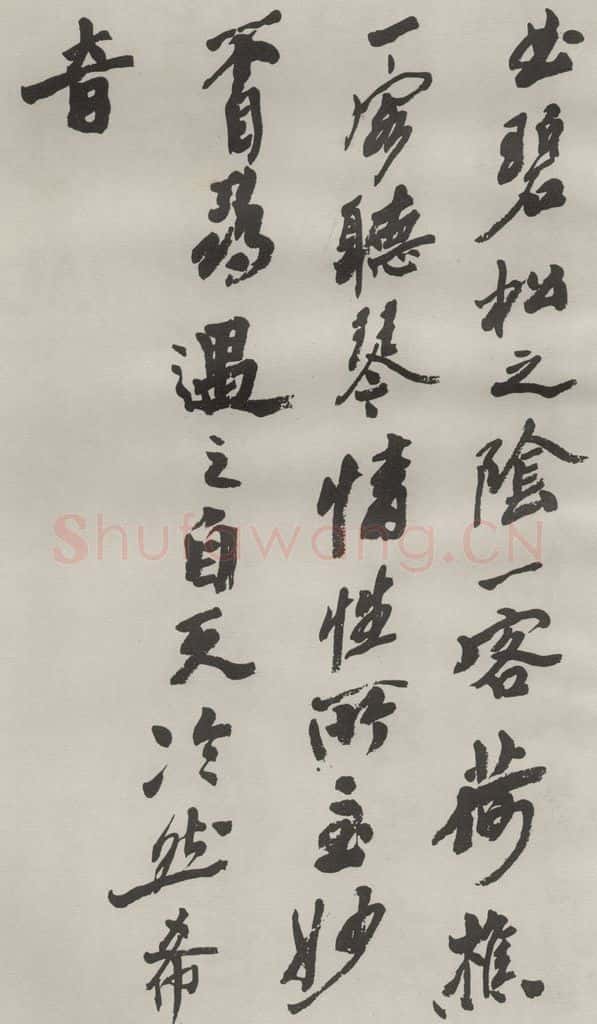 曲碧松之陰一客荷樵
一客聽琴情性所至妙
不自尋遇之自天泠然希
音
Shufawang.CN